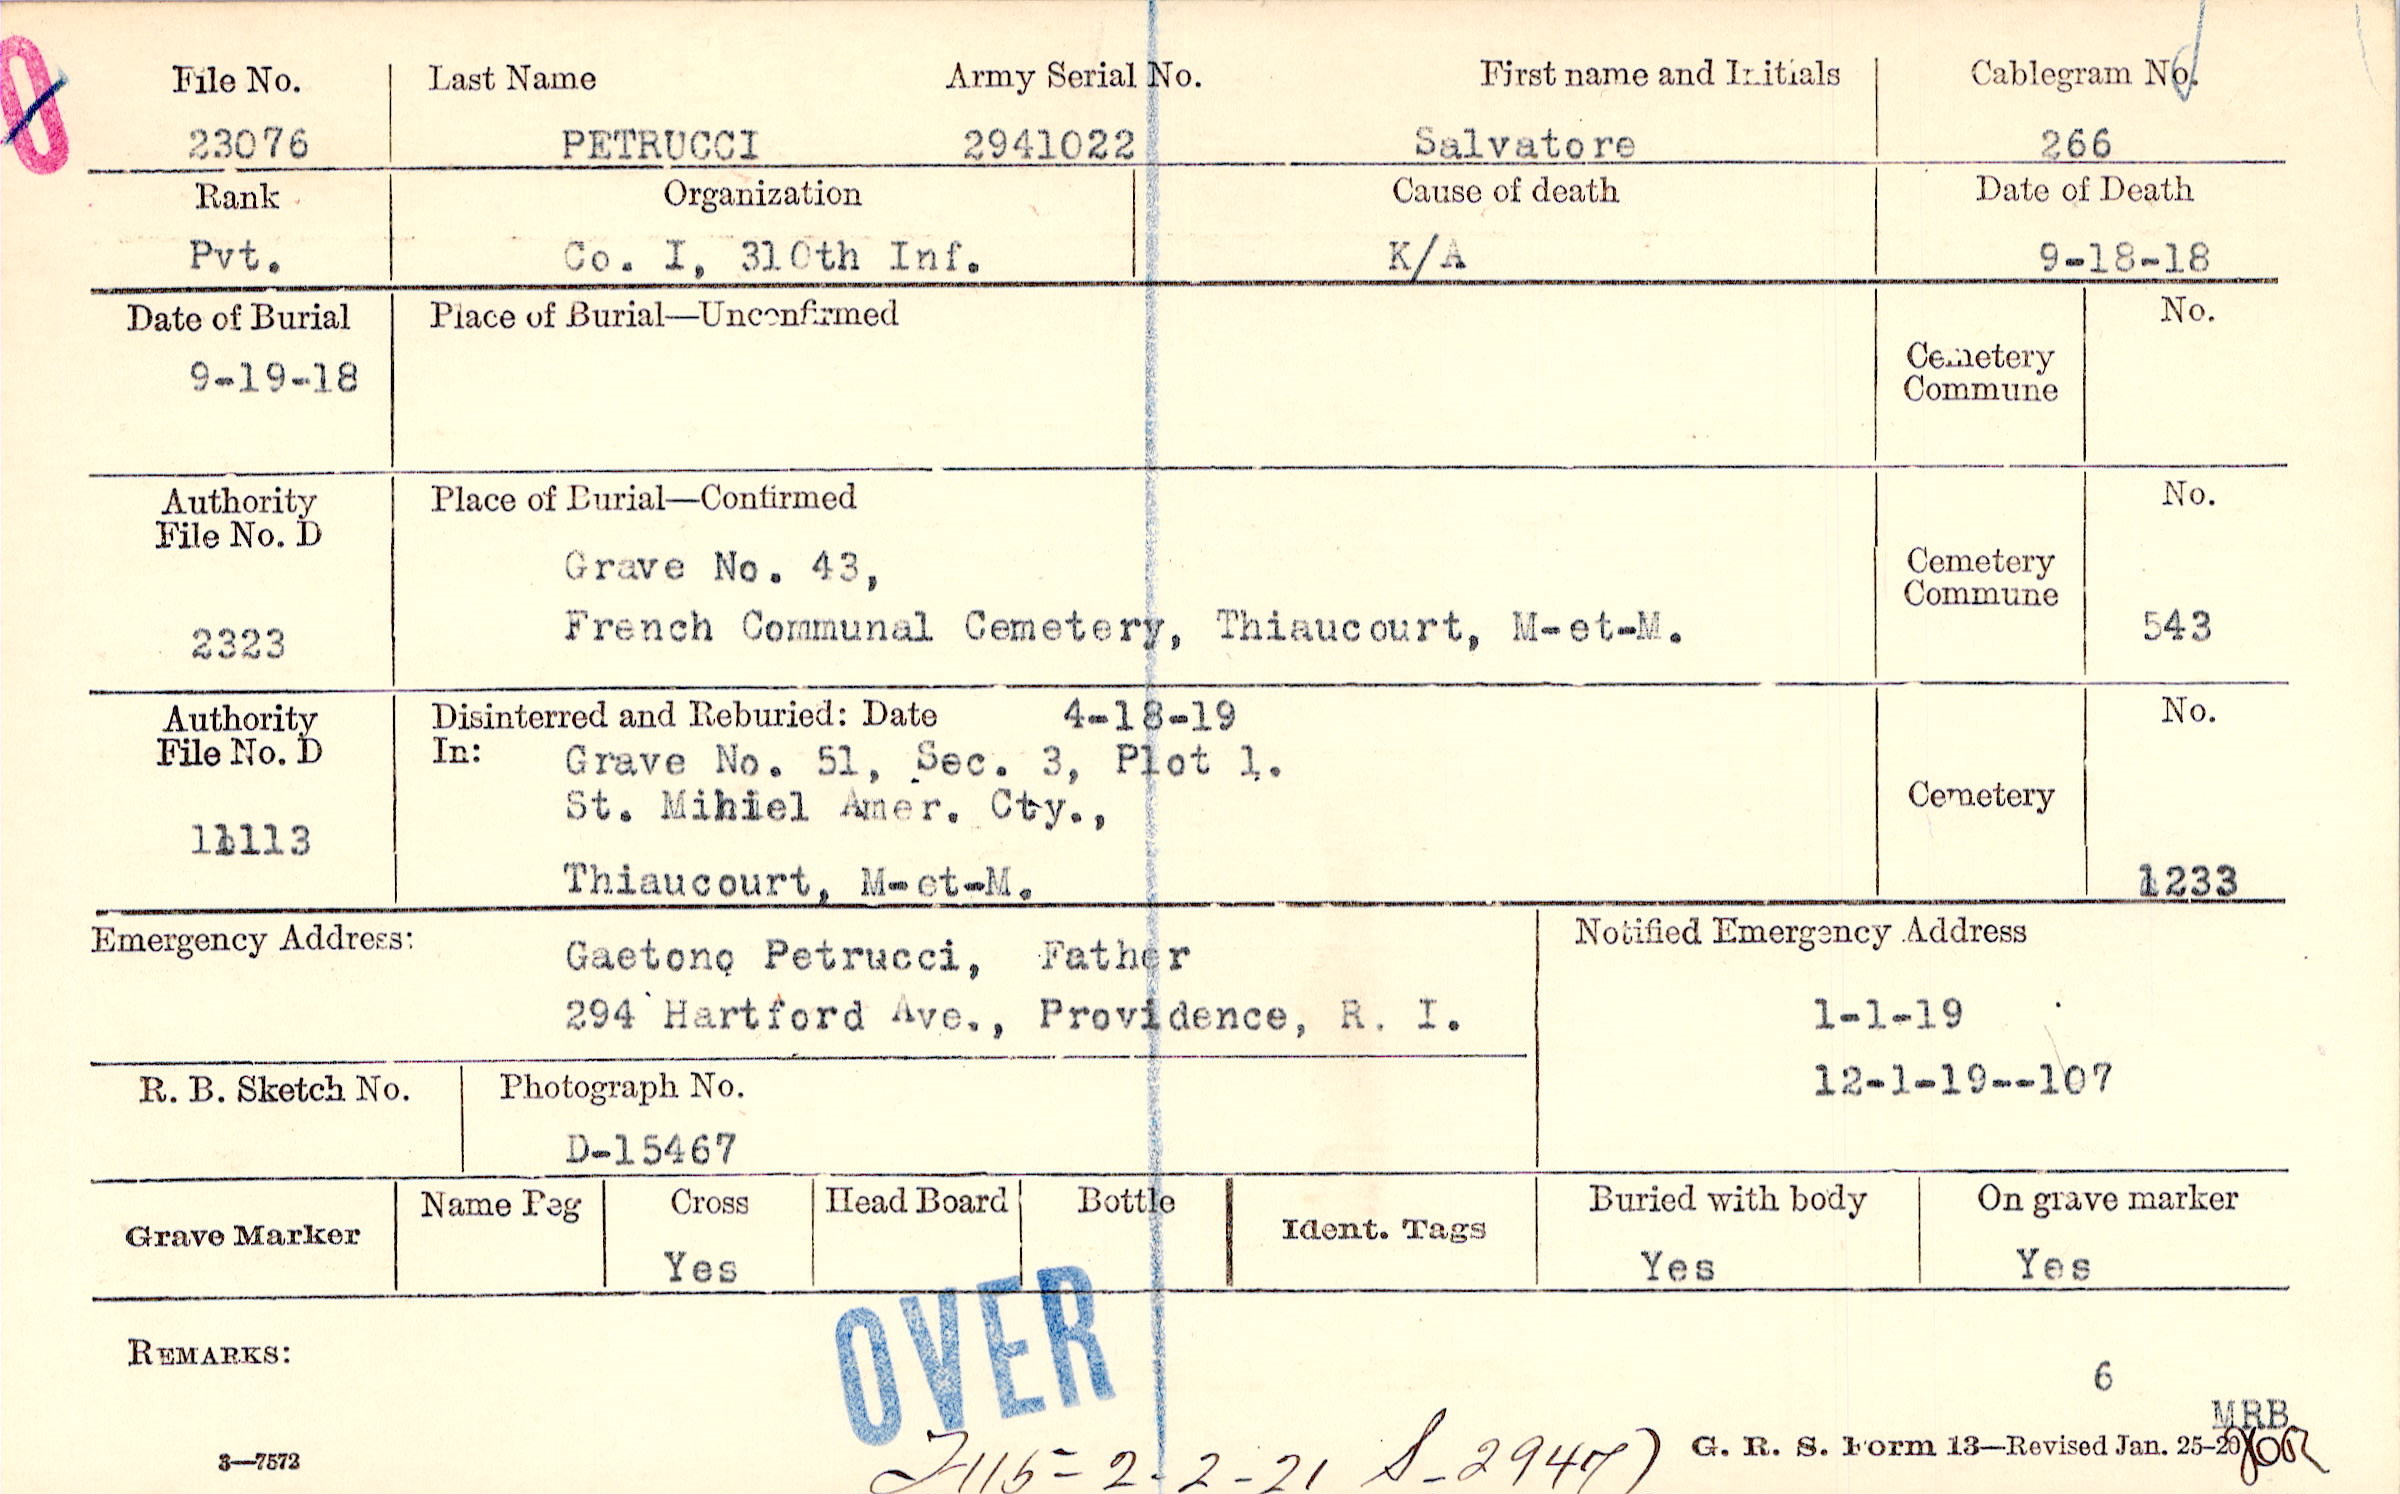 File No. Last Name Army Serial No. First name and Initials Cablegram No.
23076 PETRUCCI 2941022 Salvatore 266
Rank Organization Cause of death Date of Death
Pvt. Co. I, 310th Inf. K/A 9-18-18
Date of Burial Place of Burial—Unconfirmed No.
Cemetery
Commune
9-19-18
Authority Place of Burial—Confirmed No.
File No. D
Grave No. 43,
Cemetery
Commune
2323 French Communal Cemetery, Thiaucourt, M-et-M. 543
Authority Disinterred and Reburied: Date 4-18-19 No.
File No. D In: Grave No. 51, Sec. 3, Plot 1.
St. Mihiel Amer. Cty., Cemetery
11113
Thiaucourt, M-et-M. 1233
Emergency Address: Gaetono Petrucci, Father Notified Emergency Address
294 Hartford Ave., Providence, R. I. 1-1-19
R. B. Sketch No. Photograph No. 12-1-19--107
D-15467
Grave Marker Name Peg Cross Head Board Bottle Ident. Tags Buried with body On grave marker
Yes Yes Yes
OVER
REMARKS:
6
MRB
3—7572 G. R. S. Form 13—Revised Jan. 25-20
2-2-21 S-2947